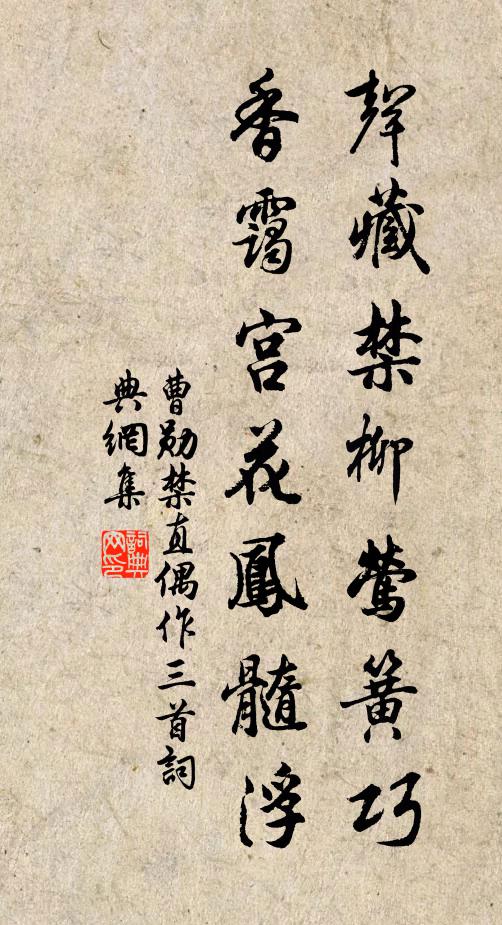 聲藏禁柳鶯簧巧
香靄宮花鳳髓浮
曹勛禁直偶作三首詞
典網集
詞典网印